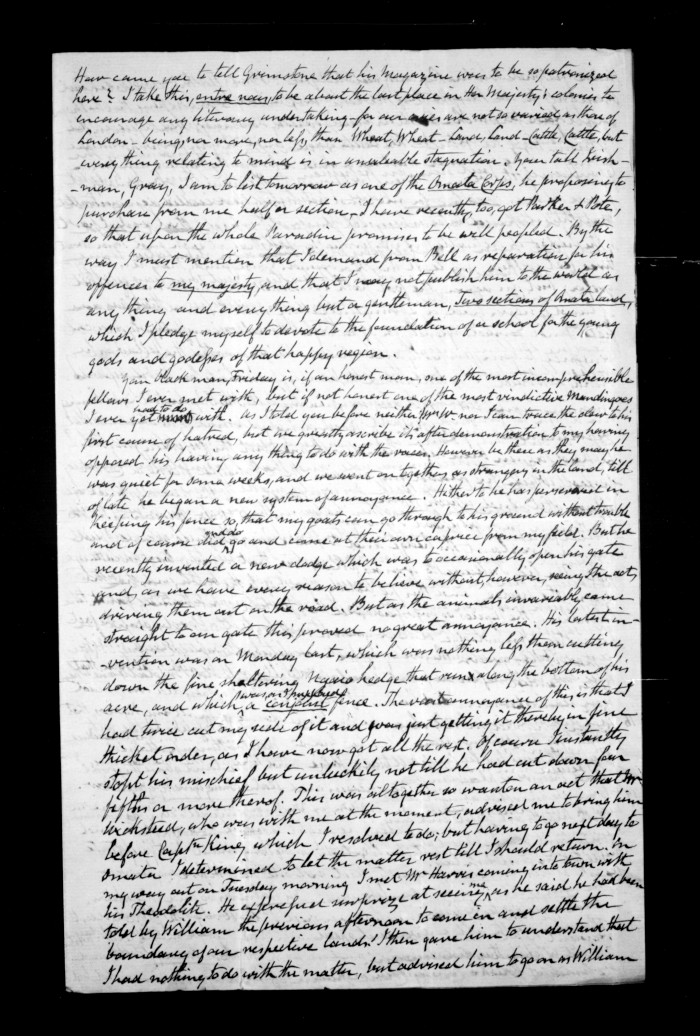 How came you to tell Grimstone that his Magazine was to be so patronized
here? I take this, entre nous, to be about the last place in Her Majesty's colonies to
encourage any literary undertaking - for our are not so varied as those of
London - being, nor more, nor less, than Wheat, Wheat - Land, Land - Cattle, Cattle, but
everything relating to mind is in unsaleable stagnation. Your tall Irish-
-man, Gray, I am to list tomorrow as one of the Omata Corps, he proposing to
purchase from me half a section. I have recently, too, got Parker & Pote,
so that upon the whole Paradise promises to be well peopled. By the
way I must mention that I demand from Bell as reparation for his
offences to my majesty, and that I may not publish him to the world as
any thing and everything but a gentleman, Two sections of Omata land,
which I pledge myself to devote to the foundation of a school for the young
gods and godesses of that happy region.
Your black man, Friday is, if an honest man, one of the most incomprehensible
fellows I ever met with, but if not honest one of the most vindictive Mandingoes
I ever yet had to do with. As I told you before neither Mrs W. nor I can trace the clew to his
first cause of hatred, but we greatly ascribe its after demonstration to my having
opposed his having any thing to do with the races. However be these as they may he
was quiet for some weeks, and we went on together, as strangers in the land, till
of late he began a new system of annoyance. Hitherto he has persevered in
keeping his fence so, that my goats can go through to his ground without trouble
and of course did and do go and came at their own caprice from my field. But he
recently invented a new dodge which was to occasionally open his gate
and, as we have every reason to believe, without, however, seeing the acts
driving them out on the road. But as the animals invariably came
straight to our gate this proved no great annoyance. His latest in-
-vention was on Monday last, which was nothing less than cutting
down the fine sheltering Ngaio hedge that runs along the bottom of his
acre, and which was a fence. The annoyance of this is that I
had twice cut my side of it and was just getting it thereby in fine
thicket order, as I have now got all the rest. Of course I instantly
stopt his mischief but unluckily not till he had cut down four
fifths or more thereof. This was altogether so wanton an act that Mr
Wicksteed, who was with me at the moment, advised me to bring him
before Captn King, which I resolved to do; but having to go next day to
Omata I determined to let the matter rest till I should return. On
my way out on Tuesday morning I met Mr Harris coming into town with
his Theodolite. He expressed surprize at seeing me, as he said he had been
told by William the previous afternoon to come in and settle the
boundary of our respective lands! I then gave him to understand that
I had nothing to do with the matter, but advised him to go on as William